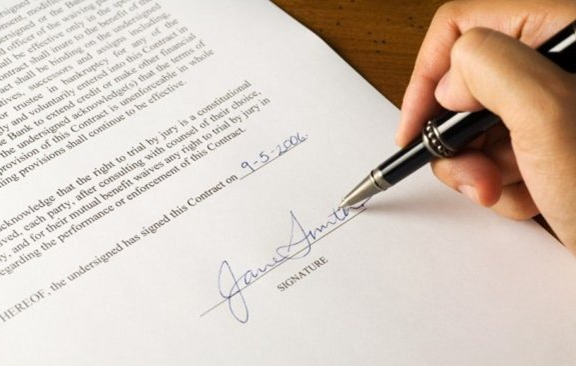 ment, modifi
dersigned or the Ban
l officer of the waiving pa
ll be effective only in the spec
ontract shall inure to the benefit of th
ct shall be binding on the undersigned
tives, successors and assigns including,
or trustee in bankruptcy for any of the
ly and voluntarily entered into this Contract in
e Bank, to extend credit or make other financial
the undersigned acknowledge(s) that the terms of
provision of this Contract is unenforceable in whole
ning provisions shall continue to be effective.
cknowledge that the right to trial by jury is a constitutional
ved, each party, after consulting with counsel of their choice,
y, and for their mutual benefit waives any right to trial by jury in
egarding the performance or enforcement of this Contract.
HEREOF, the undersigned has signed this Contract on 9-5-2006.
Jane Smith
SIGNATURE